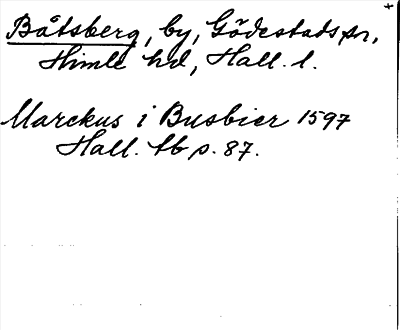 Båtsberg, by, Gödestads sn,
Himle hd, Hall. l.
Marckus i Busbier 1597
Hall. tb p. 87.